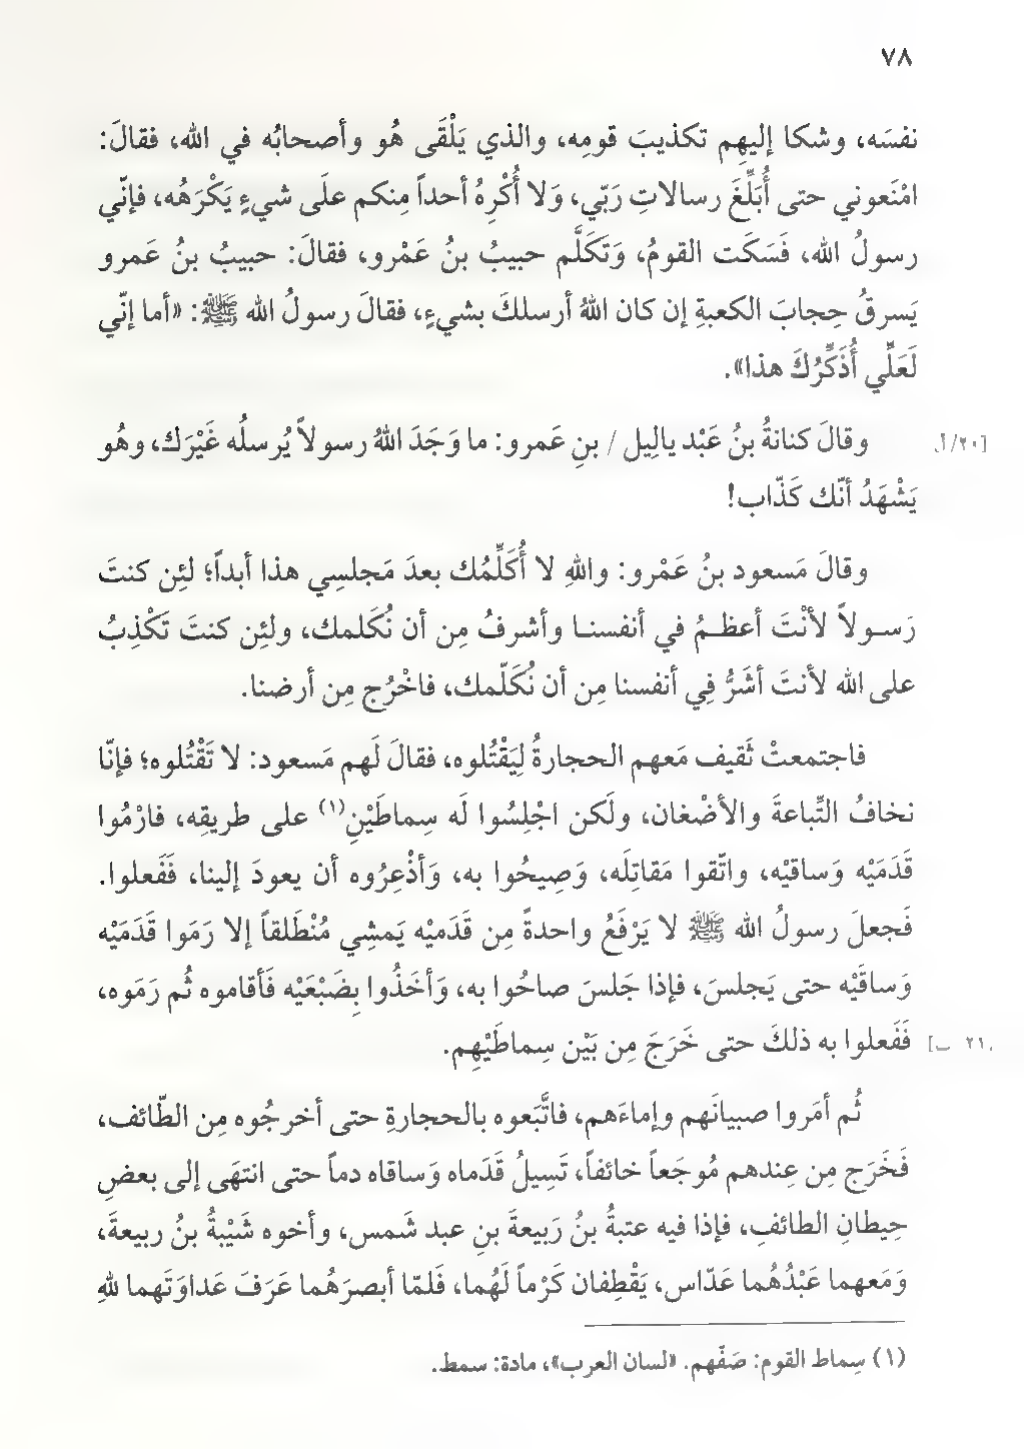 ٧٨
نفسَه، وشكا إليهِم تكذيبَ قومِه، والذي يَلْقَى هُو وأصحابُه في الله، فقالَ:
امْنَعوني حتى أُبَلِّغَ رسالاتِ رَبّي، وَلا أُكْرِهُ أحداً مِنكم علَى شيءٍ يَكْرَهُه، فإنّي
رسولُ الله، فَسَكَت القومُ، وَتَكَلَّم حبيبُ بنُ عَمْرو، فقالَ: حبيبُ بنُ عَمرو
يَسرقُ حِجابَ الكعبةِ إن كان اللهُ أرسلكَ بشيءٍ، فقالَ رسولُ الله ﷺ: «أما إنّي
لَعَلِّي أُذَكِّرُكَ هذا».
[٢٠/أ] وقالَ كنانةُ بنُ عَبْد يالِيل / بنِ عَمرو: ما وَجَدَ اللهُ رسولاً يُرسلُه غَيْرَك، وهُو
يَشْهَدُ أنّك كَذّاب!
وقالَ مَسعود بنُ عَمْرو: واللهِ لا أُكَلِّمُك بعدَ مَجلسِي هذا أبداً؛ لئِن كنتَ
رَسولاً لأنْتَ أعظمُ في أنفسنا وأشرفُ مِن أن نُكَلمك، ولئِن كنتَ تَكْذِبُ
على الله لأنتَ أشَرُّ فِي أنفسنا مِن أن نُكَلّمك، فاخْرُج مِن أرضنا.
فاجتمعتْ ثَقيف مَعهم الحجارةُ لِيَقْتُلوه، فقالَ لَهم مَسعود: لا تَقْتُلوه؛ فإنّا
نخافُ التِّباعةَ والأضْغان، ولَكن اجْلِسُوا لَه سِماطَيْنِ(١) على طريقِه، فارْمُوا
قَدَمَيْه وَساقيْه، واتّقوا مَقاتِلَه، وَصِيحُوا به، وَأذْعِرُوه أن يعودَ إلينا، فَفَعلوا.
فَجعلَ رسولُ الله ﷺ لا يَرْفَعُ واحدةً مِن قَدَميْه يَمشِي مُنْطَلقاً إلا رَمَوا قَدَمَيْه
وَساقَيْه حتى يَجلسَ، فإذا جَلسَ صاحُوا به، وَأخَذُوا بِضَبْعَيْه فَأقاموه ثُم رَمَوه،
٢١ ب] فَفَعلوا به ذلكَ حتى خَرَجَ مِن بَيْن سِماطَيْهِم.
ثُم أمَروا صبيانَهم وإماءَهم، فاتَّبَعوه بالحجارةِ حتى أخرجُوه مِن الطّائف،
فَخَرَج مِن عِندهم مُوجَعاً خائفاً، تَسِيلُ قَدَماه وَساقاه دماً حتى انتهَى إلى بعضِ
حِيطانِ الطائفِ، فإذا فيه عتبةُ بنُ رَبيعةَ بنِ عبد شَمس، وأخوه شَيْبةُ بنُ ربيعةَ،
وَمَعهما عَبْدُهُما عَدّاس، يَقْطِفان كَرْماً لَهُما، فَلمّا أبصرَهُما عَرَفَ عَداوَتَهما للهِ
(١) سِماط القوم: صَفّهم. «لسان العرب»، مادة: سمط.